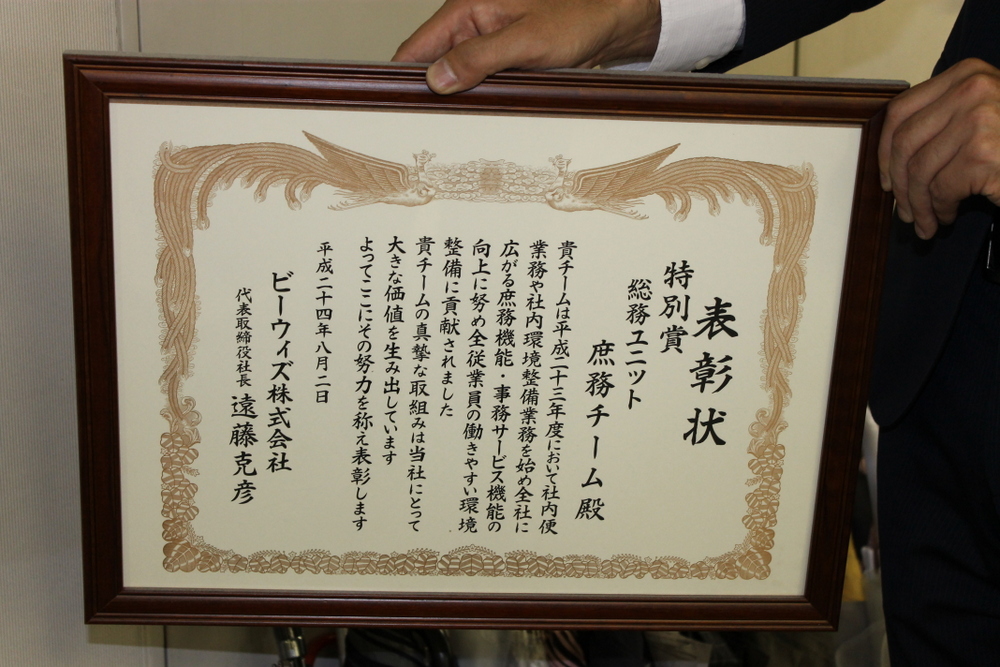 表彰状
特別賞
総務ユニット
庶務チーム殿
貴チームは平成二十三年度において社内便
業務や社内環境整備業務を始め全社に
広がる庶務機能・事務サービス機能の
向上に努め全従業員の働きやすい環境
整備に貢献されました
貴チームの真摯な取組みは当社にとって
大きな価値を生み出しています
よってここにその努力を称え表彰します
平成二十四年八月二日
ビーウィズ株式会社
代表取締役社長 遠藤克彦